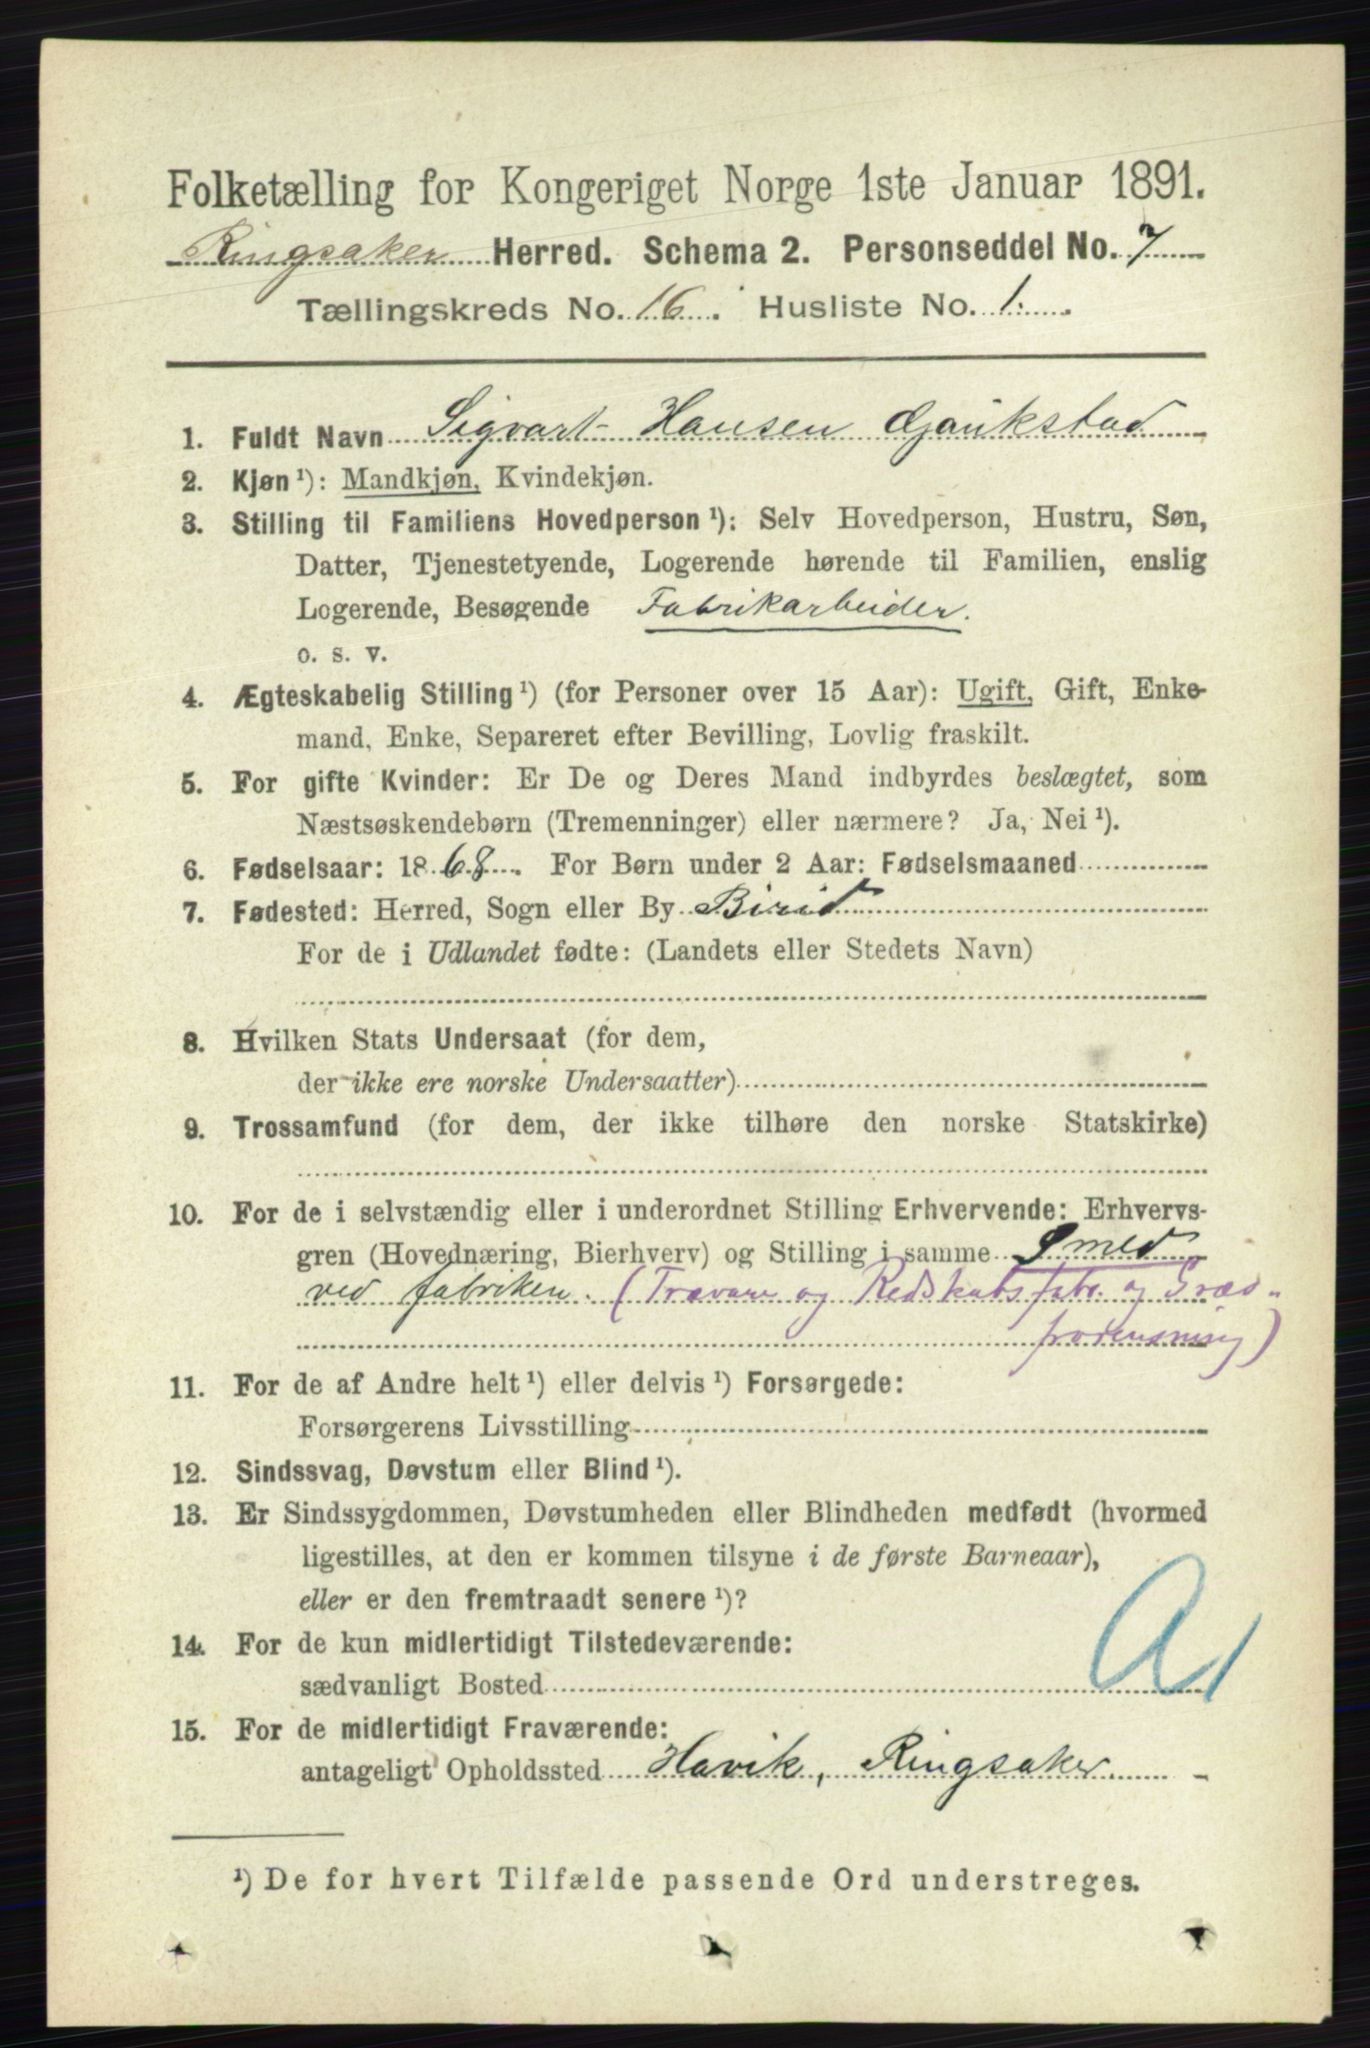 Folketælling for Kongeriget Norge 1ste Januar 1891.
Ringsaker Herred. Schema 2. Personseddel No. 7
Tællingskreds No. 16. Husliste No. 1.
1. Fuldt Navn Sigvart Hansen Gjøvikstad
2. Kjøn ¹): Mandkjøn, Kvindekjøn.
3. Stilling til Familiens Hovedperson ¹): Selv Hovedperson, Hustru, Søn,
Datter, Tjenestetyende, Logerende hørende til Familien, enslig
Logerende, Besøgende Fabrikarbeider.
o. s. v.
4. Ægteskabelig Stilling ¹) (for Personer over 15 Aar): Ugift, Gift, Enke-
mand, Enke, Separeret efter Bevilling, Lovlig fraskilt.
5. For gifte Kvinder: Er De og Deres Mand indbyrdes beslægtet, som
Næstsøskendebørn (Tremenninger) eller nærmere? Ja, Nei ¹).
6. Fødselsaar: 1868. For Børn under 2 Aar: Fødselsmaaned
7. Fødested: Herred, Sogn eller By Birid
For de i Udlandet fødte: (Landets eller Stedets Navn)
8. Hvilken Stats Undersaat (for dem,
der ikke ere norske Undersaatter)
9. Trossamfund (for dem, der ikke tilhøre den norske Statskirke)
10. For de i selvstændig eller i underordnet Stilling Erhvervende: Erhvervs-
gren (Hovednæring, Bierhverv) og Stilling i samme Smed
ved fabriken. (Trævare og Redskabsfabr. og
11. For de af Andre helt ¹) eller delvis ¹) Forsørgede:
Forsørgerens Livsstilling
12. Sindssvag, Døvstum eller Blind ¹).
13. Er Sindssygdommen, Døvstumheden eller Blindheden medfødt (hvormed
ligestilles, at den er kommen tilsyne i de første Barneaar),
eller er den fremtraadt senere ¹)?
14. For de kun midlertidigt Tilstedeværende:
sædvanligt Bosted
A1
15. For de midlertidigt Fraværende:
antageligt Opholdssted Havik, Ringsaker
¹) De for hvert Tilfælde passende Ord understreges.